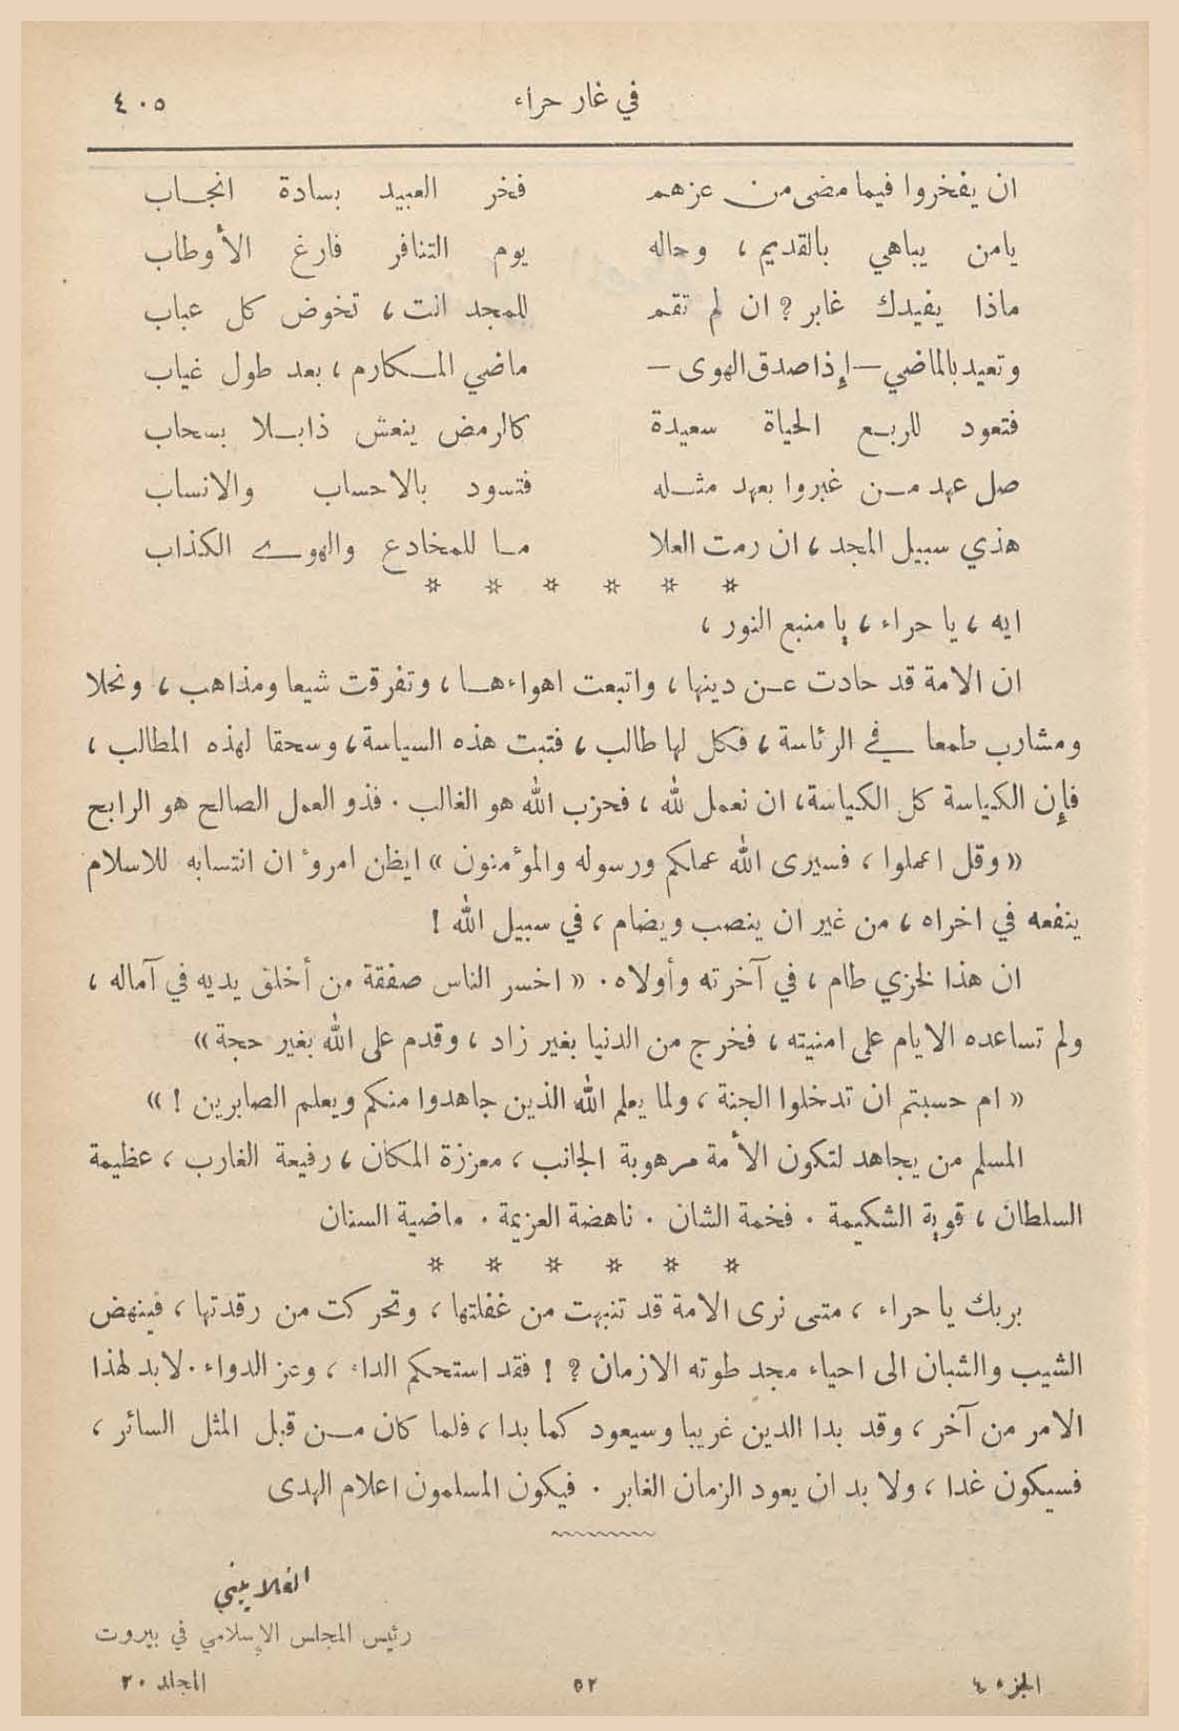 في غار حراء
٤٠٥
ان يفخروا فيما مضى من عزهم فخر العبيد بسادة انجاب
يامن يباهي بالقديم ، وحاله يوم التنافر فارغ الأوطاب
ماذا يفيدك غابر ? ان لم تقم للمجد انت ، تخوض كل عباب
وتعيد بالماضي – إذا صدق الهوى – ماضي المكارم ، بعد طول غياب
فتعود للربع الحياة سعيدة كالرمض ينعش ذابلا بسحاب
صل عهد من غبروا بعهد مثله فتسود بالاحساب والانساب
هذي سبيل المجد ، ان رمت العلا ما للمخادع والهوى الكذاب
* * * * * *
ايه ، يا حراء ، يا منبع النور ،
ان الامة قد حادت عن دينها ، واتبعت اهواءها ، وتفرقت شيعا ومذاهب ، ونحلا
ومشارب طمعا في الرئاسة ، فكل لها طالب ، فتبت هذه السياسة ، وسحقا لهذه المطالب ،
فإن الكياسة كل الكياسة ، ان نعمل لله ، فحزب الله هو الغالب . فذو العمل الصالح هو الرابح
« وقل اعملوا ، فسيرى الله عملكم ورسوله والمؤمنون » ايظن امرؤ ان انتسابه للاسلام
ينفعه في اخراه ، من غير ان ينصب ويضام ، في سبيل الله !
ان هذا لخزي طام ، في آخرته وأولاه . « اخسر الناس صفقة من أخلق يديه في آماله ،
ولم تساعده الايام على امنيته ، فخرج من الدنيا بغير زاد ، وقدم على الله بغير حجة »
« ام حسبتم ان تدخلوا الجنة ، ولما يعلم الله الذين جاهدوا منكم ويعلم الصابرين ! »
المسلم من يجاهد لتكون الأمة مرهوبة الجانب ، معززة المكان ، رفيعة الغارب ، عظيمة
السلطان ، قوية الشكيمة . فخمة الشان . ناهضة العزيمة . ماضية السنان
* * * * * *
بربك يا حراء ، متى نرى الامة قد تنبهت من غفلتها ، وتحركت من رقدتها ، فينهض
الشيب والشبان الى احياء مجد طوته الازمان ? ! فقد استحكم الداء ، وعز الدواء . لابد لهذا
الامر من آخر ، وقد بدا الدين غريبا وسيعود كما بدا ، فلما كان من قبل المثل السائر ،
فسيكون غدا ، ولا بد ان يعود الزمان الغابر . فيكون المسلمون اعلام الهدى
الغلاييني
رئيس المجلس الإسلامي في بيروت
الجزء ٤ ٥٢ المجلد ٢٠